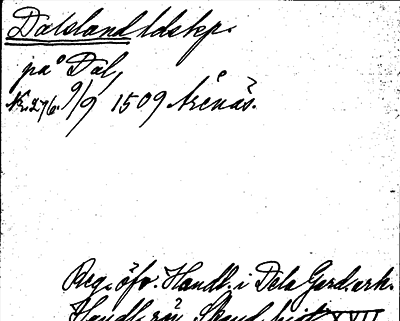 Dalsland ldskp.
på Dal,
Nr. 276. 9/9 1509 Årenäs.
Reg. öfv. Handl. i Dela Gard. ark.
Handl. rör Skand. hist. XVII